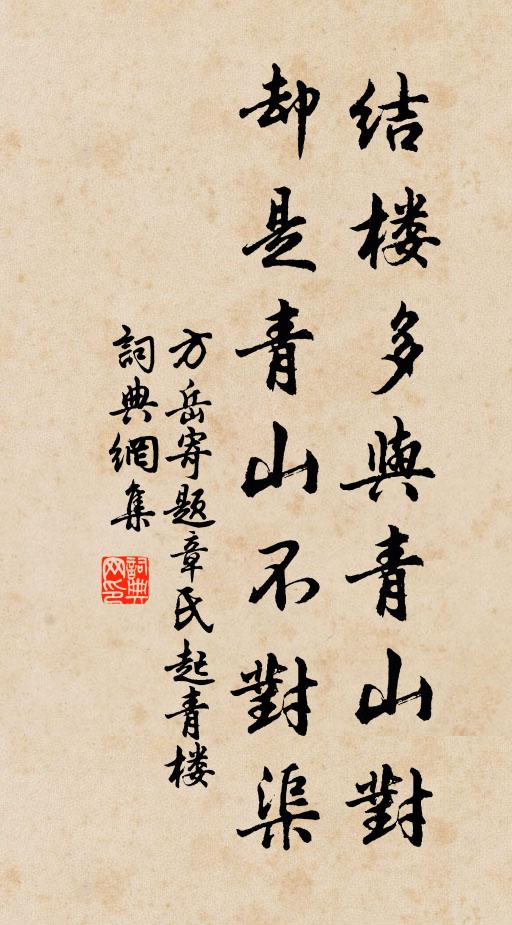 结楼多與青山對
却是青山不對渠
方岳寄题章氏起青楼
詞典網集
詞典網印